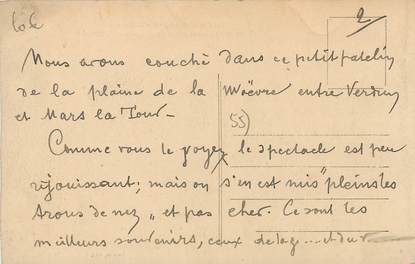 2
Nous avons couché dans ce petit patelin
de la plaine de la Woëvre entre Verdun
et Mars la Tour -
55)
Comme vous le voyez le spectacle est peu
rejouissant; mais on s'en est mis "pleins les
trous de nez" et pas cher. Ce sont les
meilleurs souvenirs, ceux de